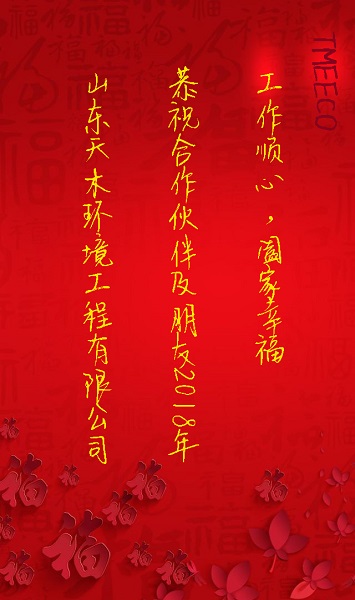 TMEECO
工作顺心，阖家幸福
恭祝合作伙伴及朋友2018年
山东天木环境工程有限公司
福
福
福
福
福
福